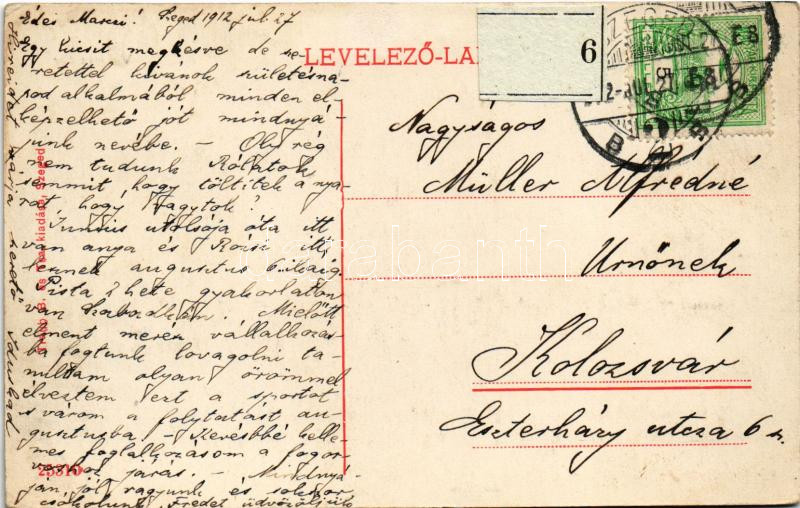 Edes Marcsi! Szeged 1912 jul 27
Egy kicsit megkésve de sze-
retettel kivánok születésna-
pod alkalmából minden el
képzelhető jót mindnyá-
junk nevébe. - Oly rég
nem tudunk Rólatok
semmit, hogy töltitek a nya-
rat, hogy vagytok?
Junius utolsója óta itt
van anya és Rózsi itt
lesznek augusztus
Pista 2 hete gyakorlaton
van Szabadkán. Mielőtt
elment merész vállalkozás-
ba fogtunk lovagolni ta-
nultam olyan örömmel
élveztem ezt a sportot
s várom a folytatást au-
gusztusba - Kevésbbé kelle-
mes foglalkozásom a fogor-
voshoz járás. - Mindnyá-
ján jól vagyunk és sokszor
csókolunk, Fredet üdvözöljük
LEVELEZŐ-LAP
6
Nagyságos
Müller Alfredné
Urnőnek
Kolozsvár
Eszterházy utcza 6 sz.
25310
darabanth